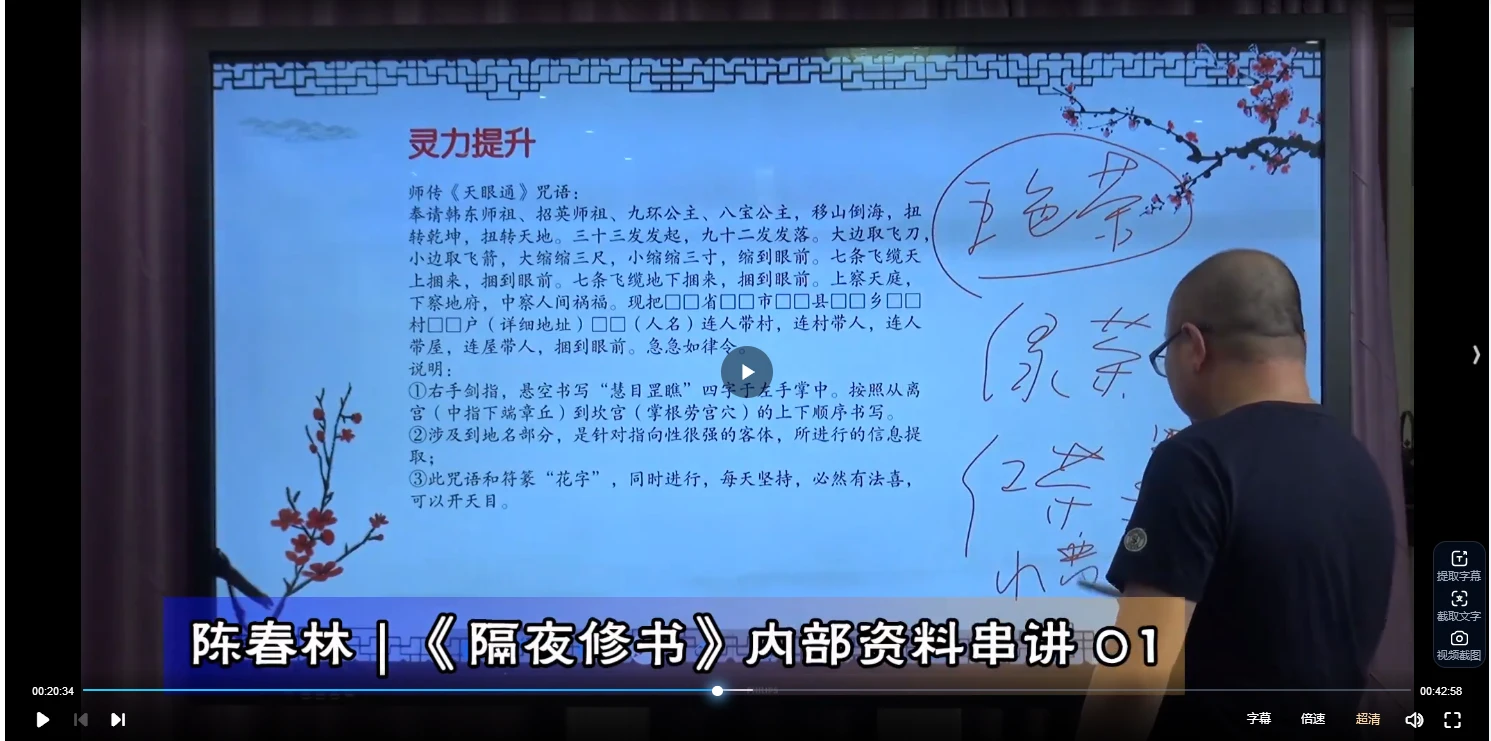 灵力提升
师传《天眼通》咒语：
奉请韩东师祖、招英师祖、九环公主、八宝公主，移山倒海，扭
转乾坤，扭转天地。三十三发发起，九十二发发落。大边取飞刀，
小边取飞箭，大缩缩三尺，小缩缩三寸，缩到眼前。七条飞缆天
上捆来，捆到眼前。七条飞缆地下捆来，捆到眼前。上察天庭，
下察地府，中察人间祸福。现把□□省□□市□□县□□乡□□
村□□户（详细地址）□□（人名）连人带村，连村带人，连人
带屋，连屋带人，捆到眼前。急急如律令。
说明：
①右手剑指，悬空书写“慧目罡瞧”四字于左手掌中。按照从离
宫（中指下端章丘）到坎宫（掌根劳宫穴）的上下顺序书写。
②涉及到地名部分，是针对指向性很强的客体，所进行的信息提
取；
③此咒语和符篆“花字”，同时进行，每天坚持，必然有法喜，
可以开天目。
五色茶
绿茶
红茶
陈春林｜《隔夜修书》内部资料串讲 01
提取字幕
截取文字
视频截图
00:20:34
00:42:58
字幕
倍速
超清